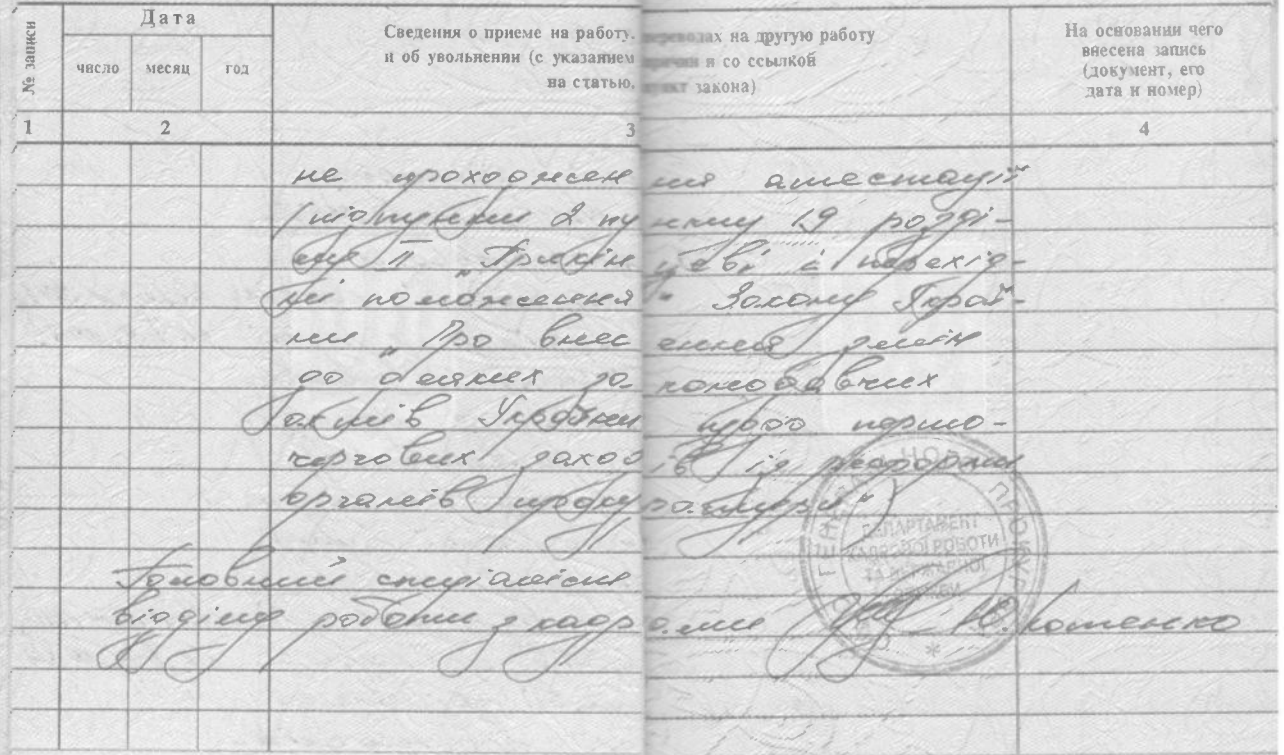 № записи
Дата
число месяц год
Сведения о приеме на работу, переводах на другую работу
и об увольнении (с указанием причин и со ссылкой
на статью, пункт закона)
На основании чего
внесена запись
(документ, его
дата и номер)
1 2 3 4
не проходження атестації
(підпункт 2 пункту 19 розді-
лу II „Прикінцеві і перехід-
ні положення" Закону Украї-
ни „Про внесення змін
до деяких законодавчих
актів України щодо першо-
чергових заходів із реформи
органів прокуратури")
Головний спеціаліст
відділу роботи з кадрами Ю.
ДЕПАРТАМЕНТ
КАДРОВОЇ РОБОТИ
ТА ДЕРЖАВНОЇ
СЛУЖБИ